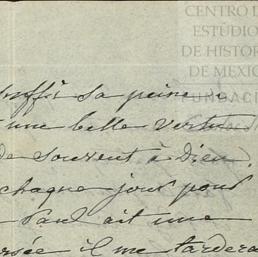 CENTRO D
ESTUDIO
DE HISTOR
DE MEXIC
FUNDACI
suffit sa peine
une belle vertu
de souvent à Dieu.
chaque jour pour
Paul ait une
il me tardera